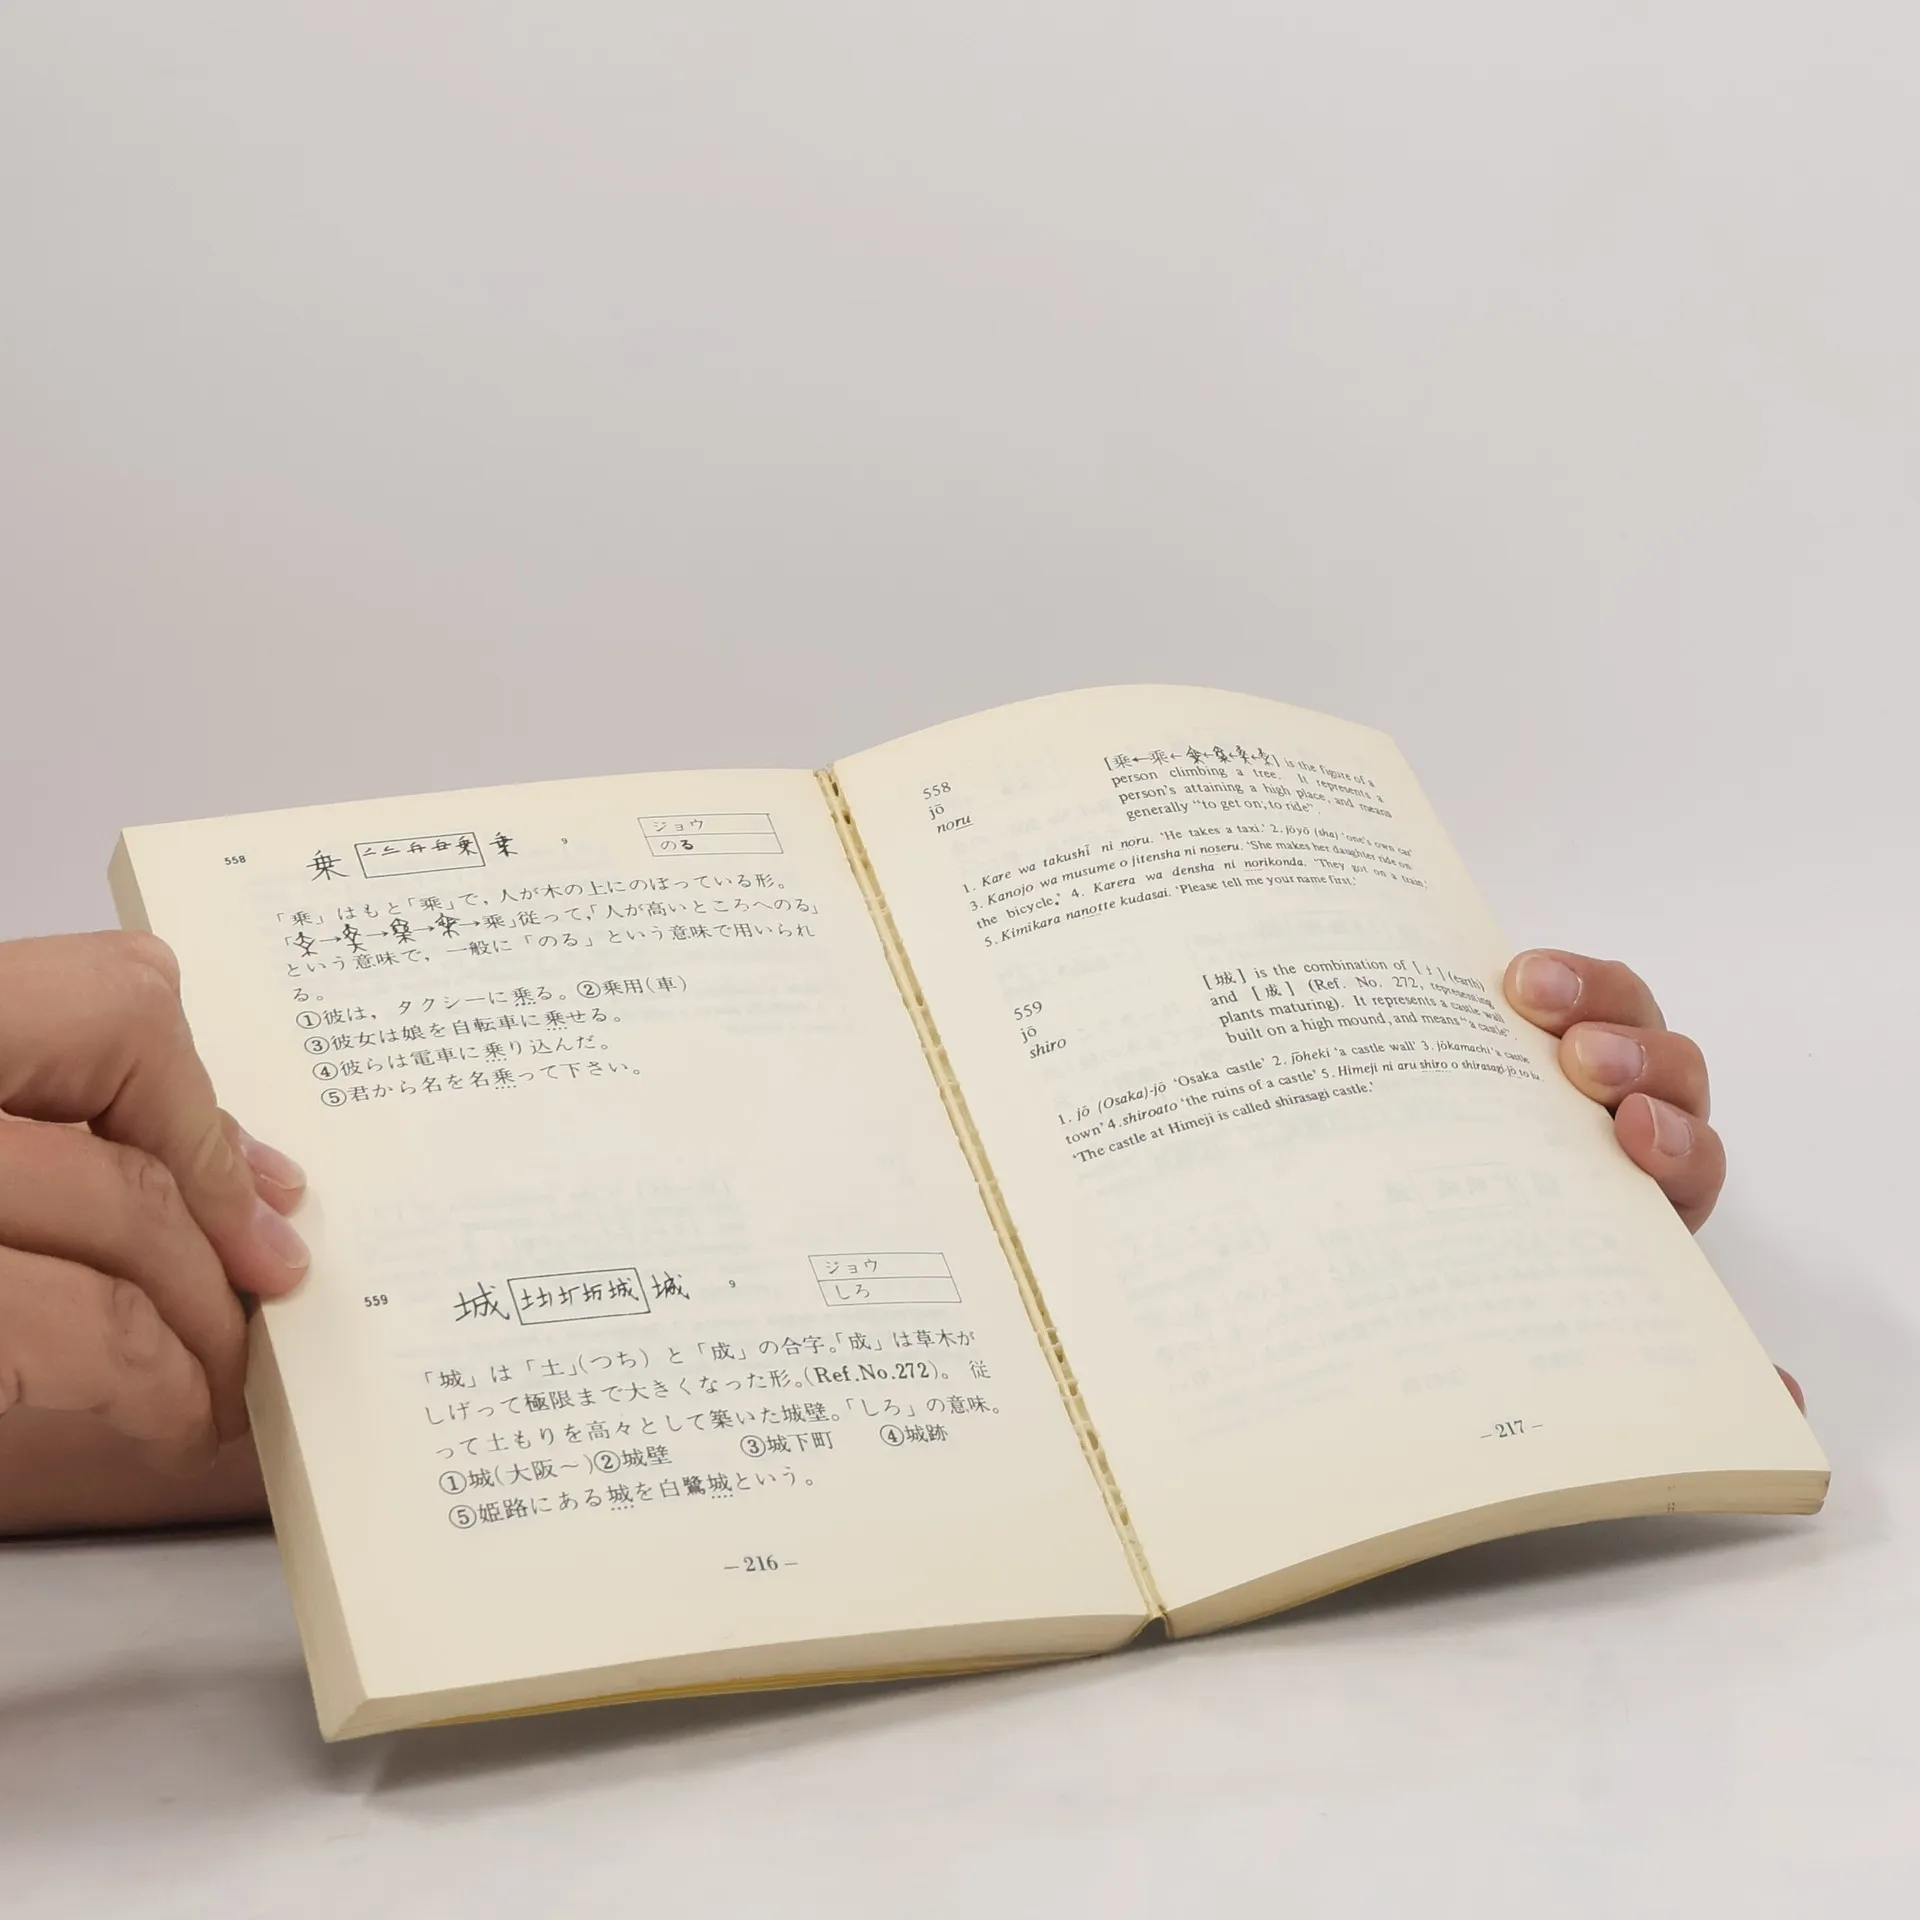 558
乗
乗
9
ジョウ
のる
「乗」はもと「乗」で，人が木の上にのぼっている形。
→乗」従って，「人が高いところへのる」
という意味で，一般に「のる」という意味で用いられ
る。
①彼は，タクシーに乗る。②乗用(車)
③彼女は娘を自転車に乗せる。
④彼らは電車に乗り込んだ。
⑤君から名を名乗って下さい。
559
城
城
9
ジョウ
しろ
「城」は「土」(つち) と「成」の合字。「成」は草木が
しげって極限まで大きくなった形。(Ref.No.272)。従
って土もりを高々として築いた城壁。「しろ」の意味。
①城(大阪～)②城壁 ③城下町 ④城跡
⑤姫路にある城を白鷺城という。
–216–
558
jō
noru
[乗← is the figure of a
person climbing a tree. It represents a
person's attaining a high place, and means
generally "to get on; to ride".
1. Kare wa takushī ni noru. 'He takes a taxi.' 2. jōyō (sha) 'one's own car'
3. Kanojo wa musume o jitensha ni noseru. 'She makes her daughter ride on
the bicycle.' 4. Karera wa densha ni norikonda. 'They got on a train.'
5. Kimikara nanotte kudasai. 'Please tell me your name first.'
559
jō
shiro
[城] is the combination of [土] (earth)
and [成] (Ref. No. 272, representing
plants maturing). It represents a castle wall
built on a high mound, and means "a castle".
1. jō (Osaka)-jō 'Osaka castle' 2. jōheki 'a castle wall' 3. jōkamachi 'a castle
town' 4. shiroato 'the ruins of a castle' 5. Himeji ni aru shiro o shirasagi-jō to iu.
'The castle at Himeji is called shirasagi castle.'
–217–